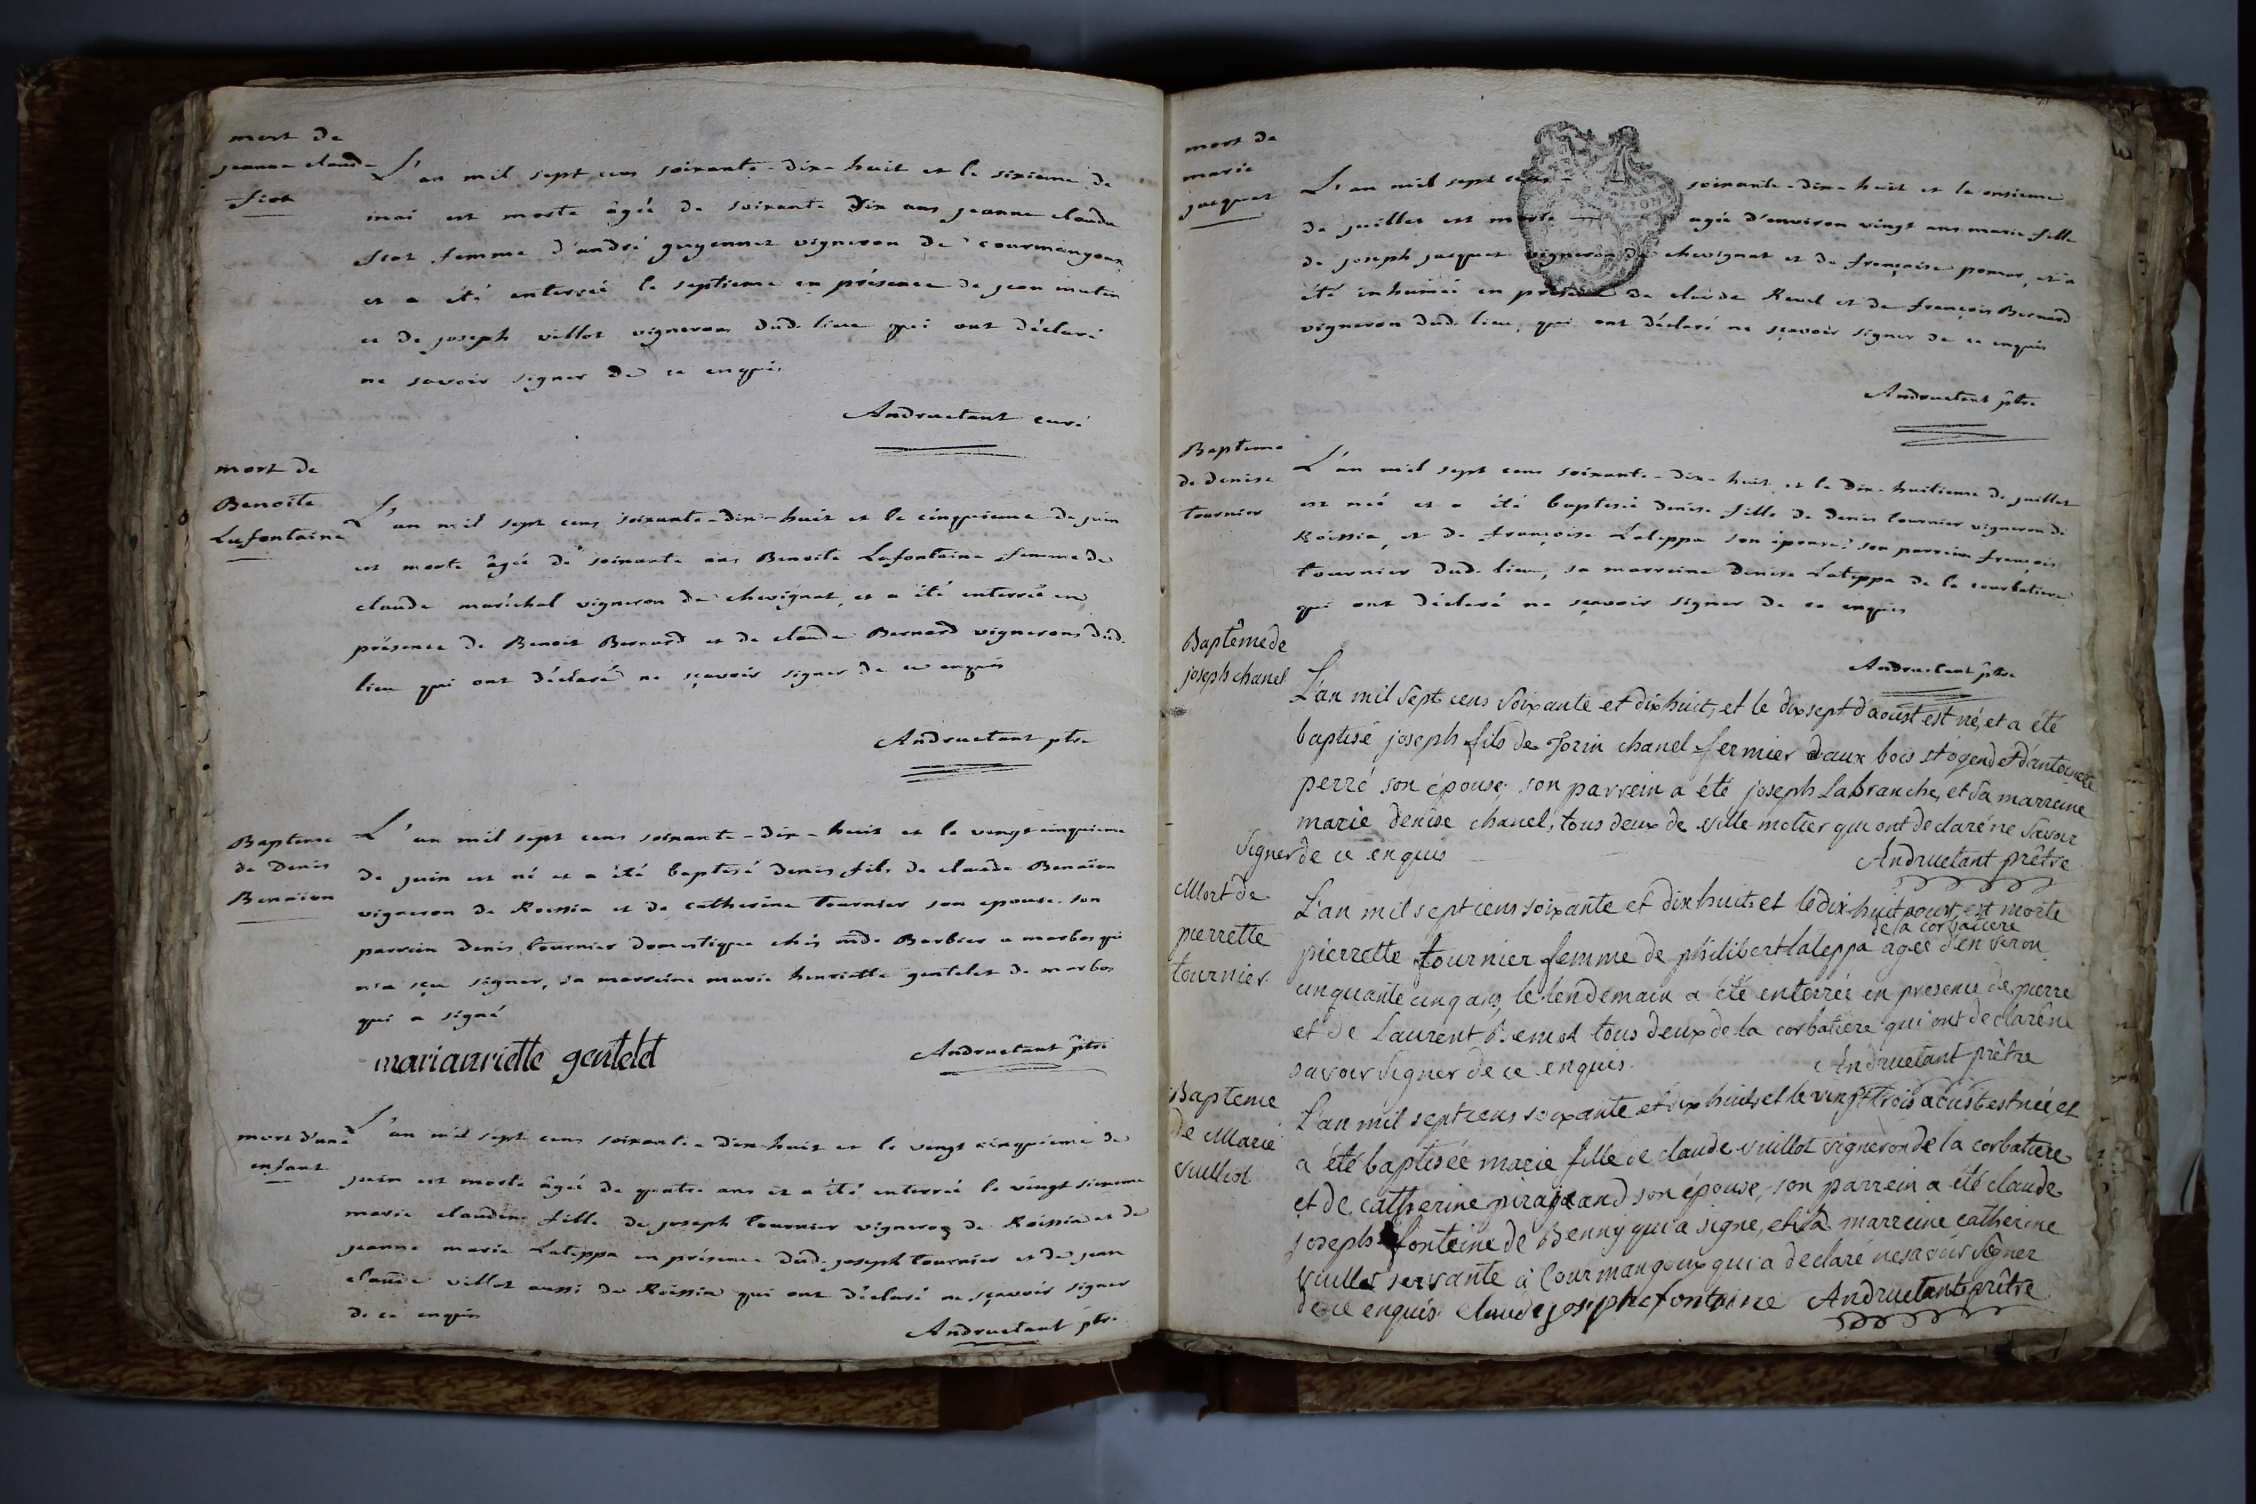 mort de
jeanne claude
fiot
L'an mil sept cens soixante-dix-huit et le sixieme de
mai est morte âgée de soixante dix ans jeanne claude
fiot femme d'andré guyennet vigneron de courmangoux
et a été enterrée le septieme en présence de jean mutin
et de joseph villot vignerons dud. lieu qui ont déclaré
ne savoir signer de ce enquis
Andructant curé
mort de
Benoite
Lafontaine
L'an mil sept cens soixante-dix-huit et le cinquieme de juin
est morte âgée de soixante ans Benoite Lafontaine femme de
claude maréchal vigneron de chevignat, et a été enterrée en
présence de Benoit Bernard et de claude Bernard vignerons dud.
lieu qui ont déclaré ne sçavoir signer de ce enquis
Andructant ptre
Bapteme
de Denis
Benaion
L'an mil sept cens soixante-dix-huit et le vingt cinquieme
de juin est né et a été baptisé denis fils de claude Benaion
vigneron de Roissia et de catherine tournier son epouse. son
parrein denis tournier domestique chés mde Barbier a marbos qui
n'a sçu signer, sa marreine marie henriette gentelet de marbos
qui a signé
marianriette gentelet
Andructant ptre
mort d'une
enfant
L'an mil sept cens soixante-dix-huit et le vingt cinquieme de
juin est morte âgée de quatre ans et a été enterrée le vingt sixieme
marie claudine fille de joseph tournier vigneron de Roissia et de
jeanne marie Lateppa en présence dud. joseph tournier et de jean
claude villot aussi de Roissia qui ont déclaré ne sçavoir signer
de ce enquis
Andructant ptre
mort de
marie
jacquet
L'an mil sept cens soixante-dix-huit et le onsieme
de juillet est morte agée d'environ vingt ans marie fille
de joseph jacquet vigneron de chevignat et de françoise pomar, et a
été inhumée en présence de claude Revel et de françois Bernard
vigneron dud. lieu, qui ont déclaré ne sçavoir signer de ce enquis
Andructant ptre
Bapteme
de denise
tournier
L'an mil sept cens soixante-dix-huit et le dix-huitieme de juillet
est neé et a été baptisée denise fille de denis tournier vigneron de
Roissia, et de françoise Lateppa son épouse. son parrein françois
tournier dud. lieu, sa marreine denise Lateppa de la courbatiere
qui ont déclaré ne sçavoir signer de ce enquis
Andructant ptre
Baptême de
joseph chanel
L'an mil sept cens soixante et dixhuit, et le dixsept d'aoust est né, et a été
baptisé joseph fils de Jorin chanel fermier d'aux bois st ogend et d'antoinette
perré son épouse, son parrein a été joseph Labranche, et sa marreine
marie denise chanel, tous deux de ville motier qui ont declaré ne savoir
signer de ce enquis
Andructant prêtre
Mort de
pierrette
tournier
L'an mil sept cens soixante et dix huit, et le dix huit aoust, est morte
de la corbatiere
pierrette tournier femme de philibert lateppa agée d'environ
cinquante cinq ans, le lendemain a été enterrée en presence de pierre
et de Laurent tous deux de la corbatiere qui ont declaré ne
savoir signer de ce enquis.
Andructant prêtre
Bapteme
De Marie
Vuillot
L'an mil sept cens soixante et dix huit, et le vingt trois aoust est née et
a été baptisée marie fille de claude vuillot vigneron de la corbatiere
et de catherine pirajeand son épouse, son parrein a été claude
joseph fonteine de Benny qui a signé, et sa marreine catherine
vuillot servante à Courmangoux qui a declaré ne savoir signer
de ce enquis claude josephe fontaine Andructant prêtre